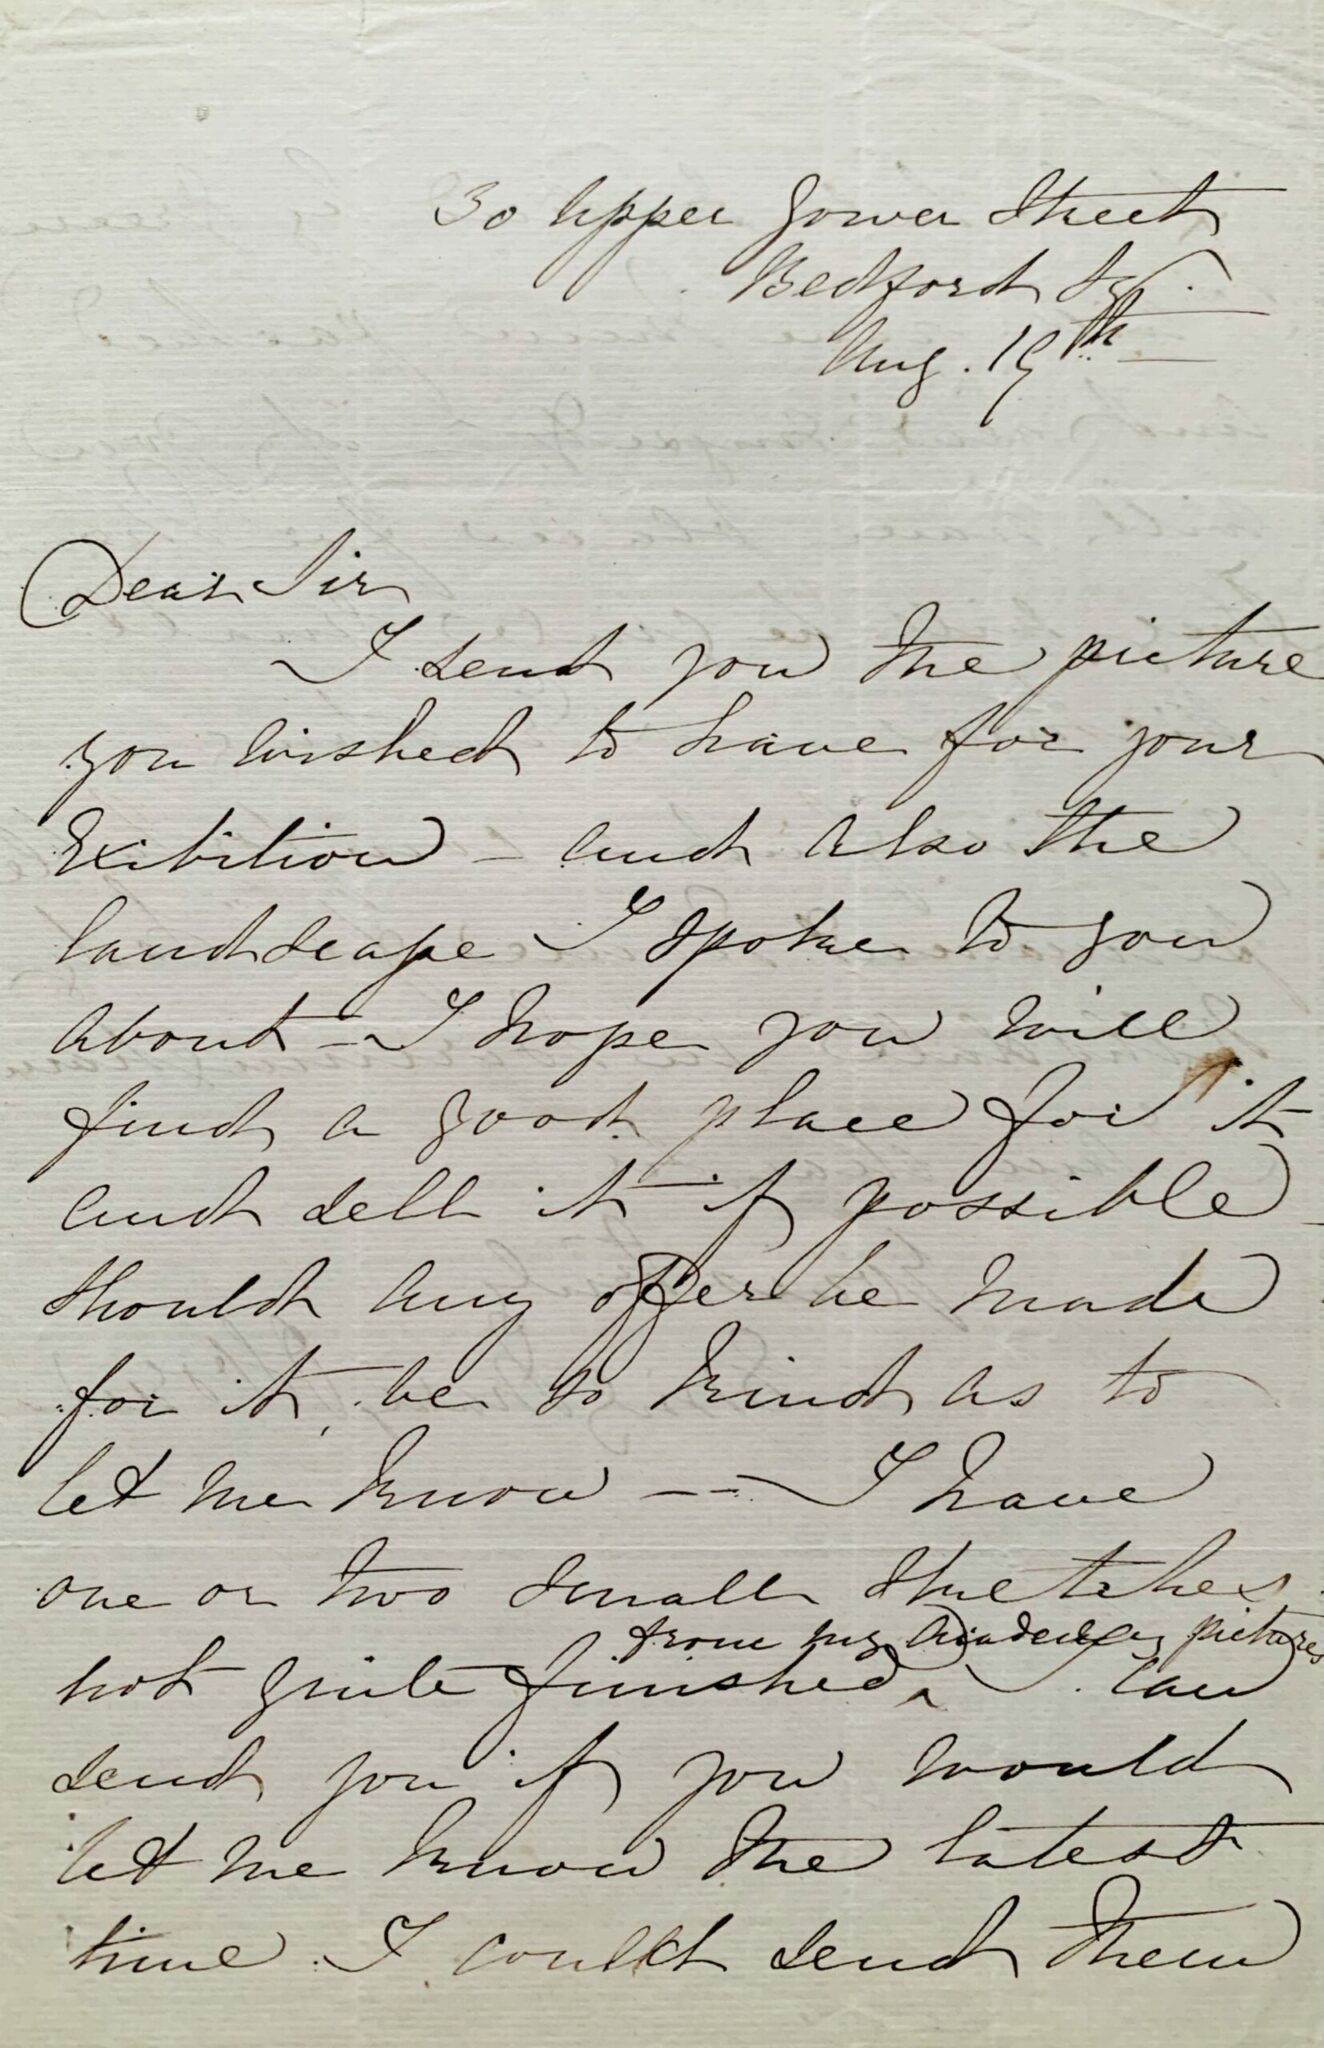 30 Upper Gower Street
Bedford Sq.
Aug. 19th
Dear Sir
I send you the picture
you wished to have for your
Exibition - and also the
landscape I spoke to you
about - I hope you will
find a good place for it
and sell it if possible -
should any offer be made
for it, be so kind as to
let me know -- I have
one or two small sketches
from my Academy pictures
not quite finished ‸ I can
send you if you would
let me know the latest
time I could send them